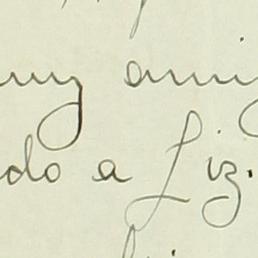 muy ami
do a Liz.